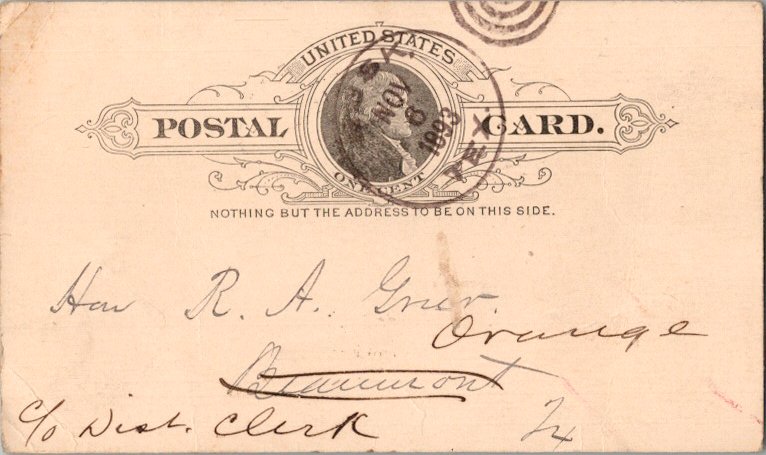 UNITED STATES
POSTAL CARD.
ONE CENT
RUSK. TEX.
NOV
6
1893
NOTHING BUT THE ADDRESS TO BE ON THIS SIDE.
Hon R. A. Greer
Orange
Beaumont
c/o Dist. Clerk
Tx